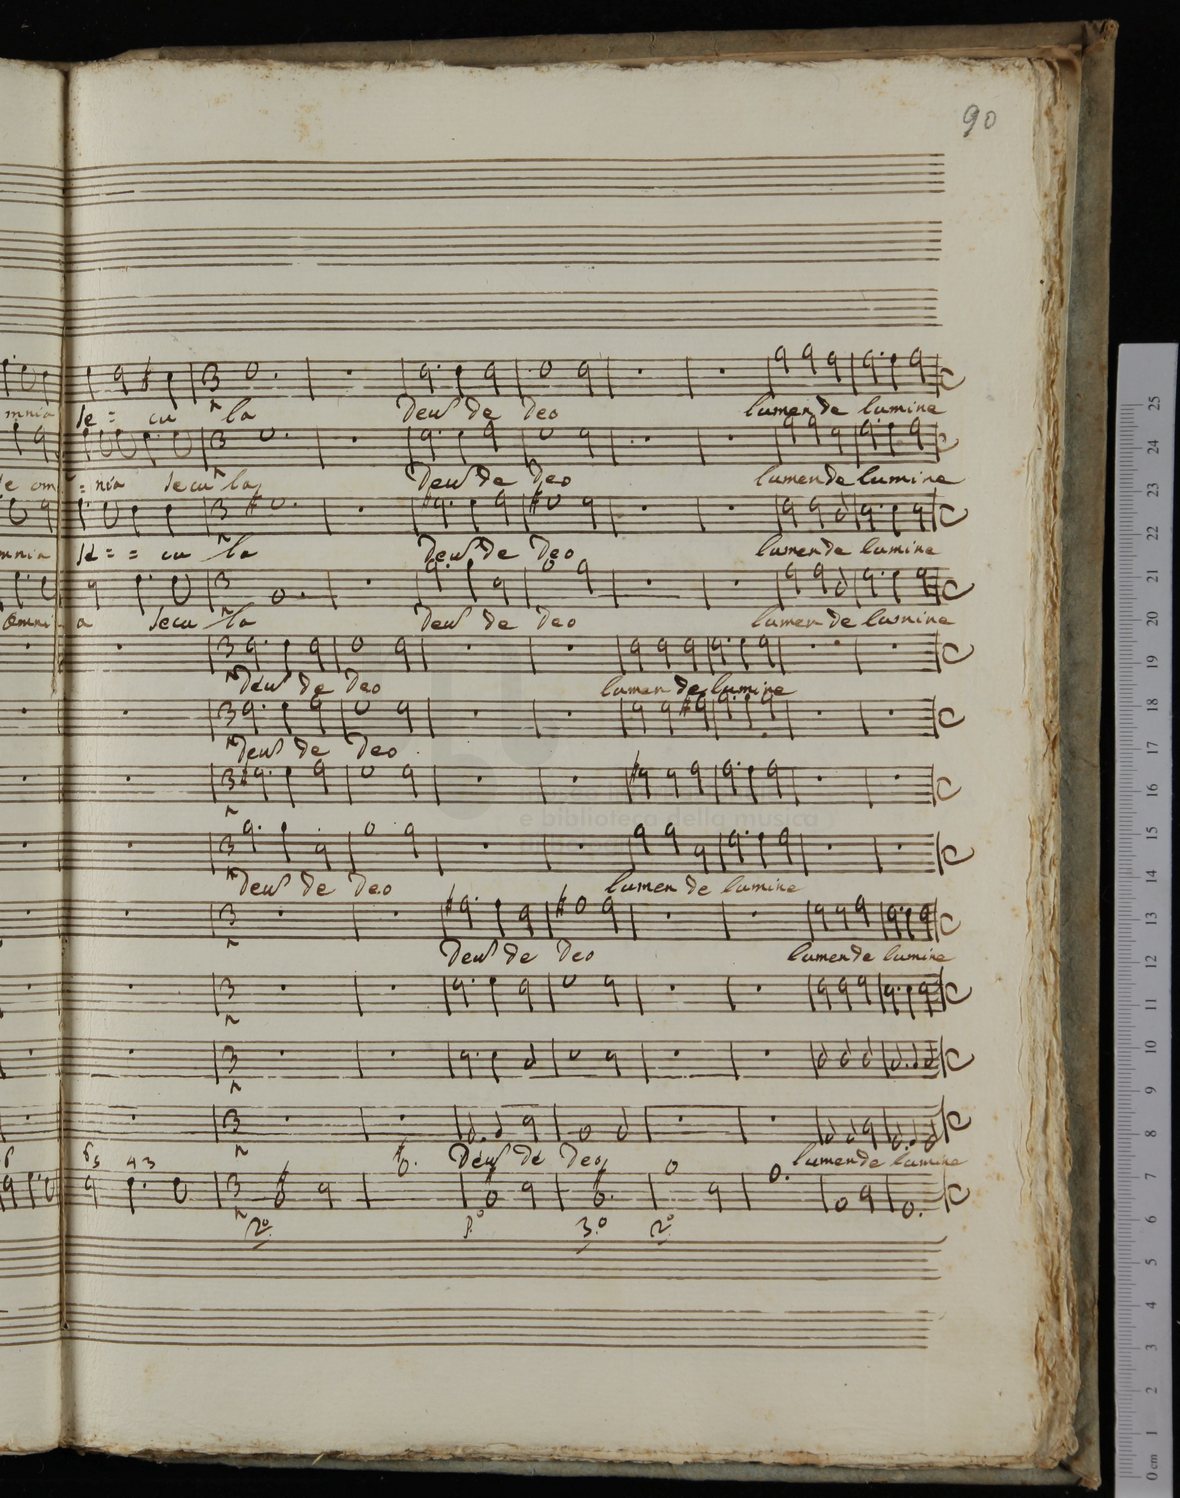 90
mnia se = cu la Deus de Deo lumen de lumine
e om = nia secu la Deus de Deo lumen de lumine
mnia se = = cu la Deus de Deo lumen de lumine
omni a secu la Deus de Deo lumen de lumine
Deus de Deo lumen de lumine
Deus de Deo
Deus de Deo lumen de lumine
Deus de Deo lumen de lumine
Deus de Deo lumen de lumine
6 6 5 4 3
2º 1º 3º 2º
e biblioteca della musica
25
24
23
22
21
20
19
18
17
16
15
14
13
12
11
10
9
8
7
6
5
4
3
2
1
0 cm